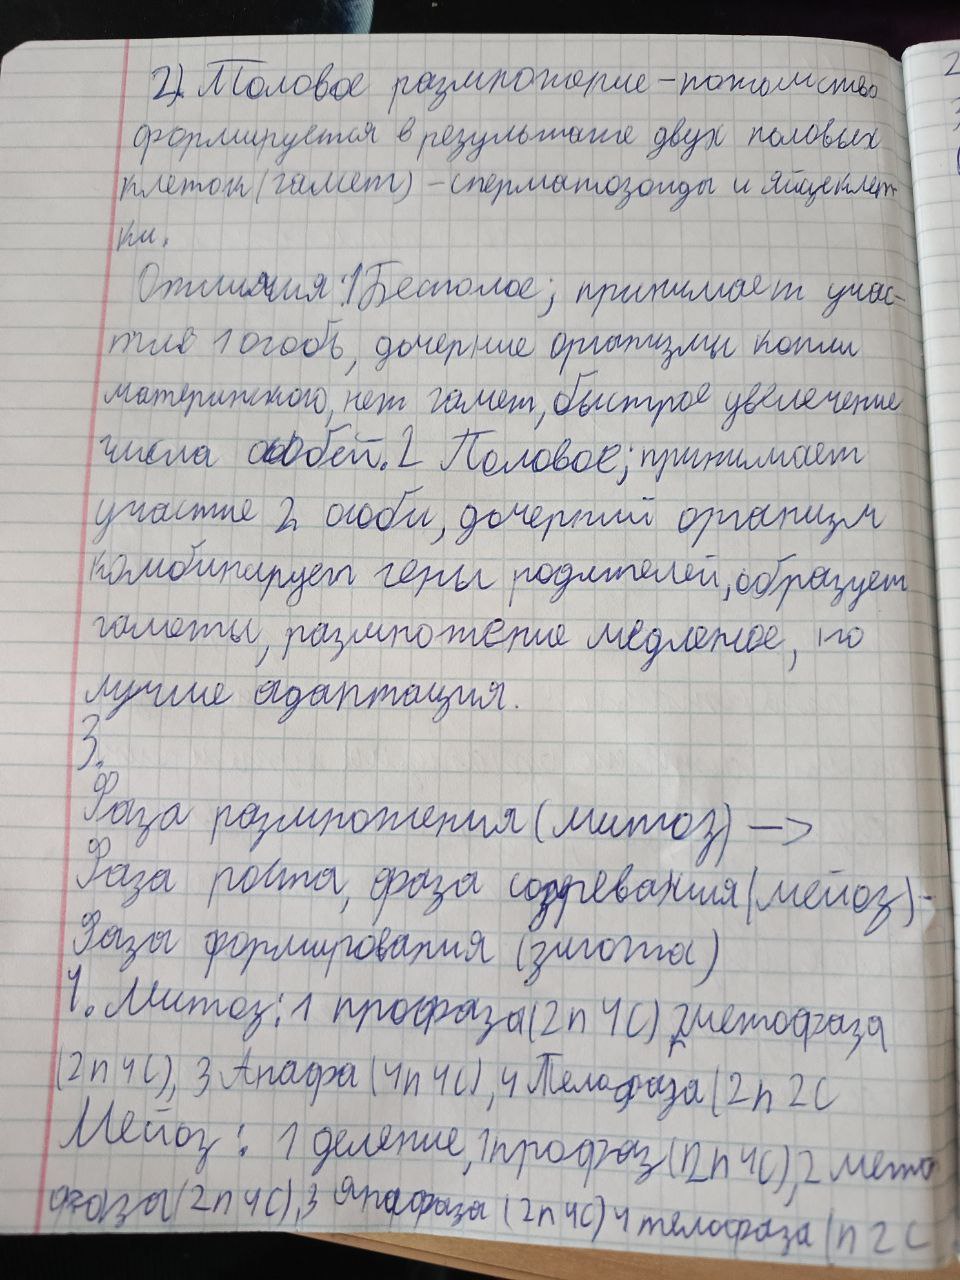 2). Половое размножение - потомство
формируется в результате двух половых
клеток (гамет) - сперматозоиды и яйцеклет-
ки.
Отличия: 1 Бесполое; принимает учас-
тие 1 особь, дочерние организмы копии
материнского, нет гамет, быстрое увелечение
числа особей. 2 Половое; принимает
участие 2 особи, дочерний организм
комбинирует гены родителей, образует
гаметы, размножение медленое, но
лучше адаптация.
3.
Фаза размножения (митоз) ->
Фаза роста, фаза созревания (мейоз) -
Фаза формирования (зигота)
4. Митоз: 1 профаза (2n 4c) 2 метофаза
(2n 4c), 3 Анафа (4n 4c), 4 Телофаза (2n 2c
Мейоз: 1 деление, 1 профаз (2n 4c), 2 мета
фаза (2n 4c), 3 Анафаза (2n 4c) 4 телофаза (n 2c